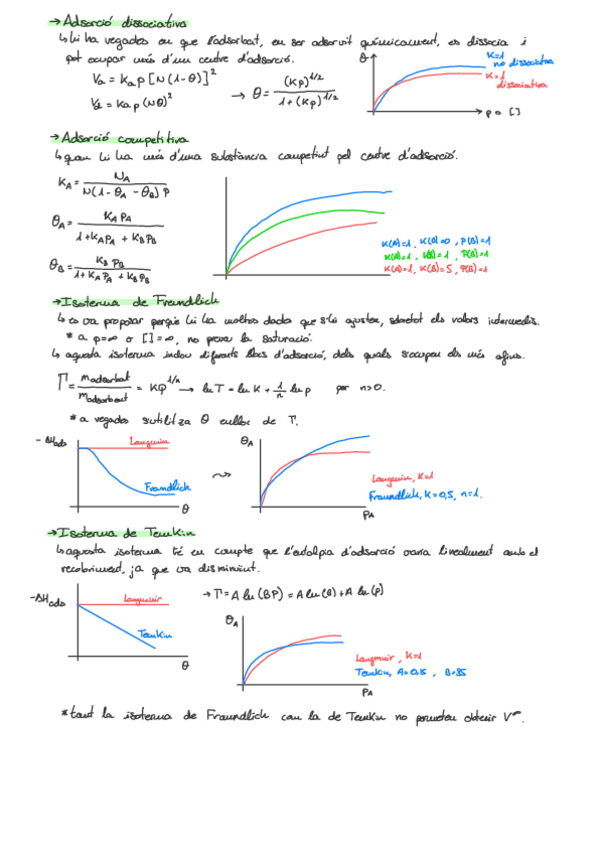 → Adsorció dissociativa
↳ hi ha vegades en que l'adsorbat, en ser adsorvit químicament, es dissocia i
pot ocupar més d'un centre d'adsorció.
Va = Ka p [N(1-θ)]²
Vd = Ka p (Nθ)²
→ θ = (Kp)^1/2 / 1+(Kp)^1/2
θ
K=1
no dissociativa
K=1
dissociativa
p o []
→ Adsorció competitiva
↳ quan hi ha més d'una substància competint pel centre d'adsorció.
KA = NA / N(1-θA-θB)P
θA = KA PA / 1+KAPA + KBPB
θB = KB PB / 1+KAPA + KBPB
K(A)=1, K(B)=0, P(B)=1
K(A)=1, K(B)=1, P(B)=1
K(A)=1, K(B)=5, P(B)=1
→ Isoterma de Freundlich
↳ es va proposar perquè hi ha moltes dades que s'hi ajusten, sobretot els valors intermedis.
* a p=∞ o []=∞, no preveu la saturació.
↳ aquesta isoterma inclou diferents llocs d'adsorció, dels quals s'ocupen els més afins.
Γ = madsorbat / madsorbent = KP^1/n → ln Γ = ln K + 1/n ln p per n>0.
* a vegades s'utilitza θ enlloc de Γ.
-ΔHads
Langmuir
Freundlich
θ
θA
Langmuir, K=1
Freundlich, K=0,5, n=1.
PA
→ Isoterma de Temkin
↳ aquesta isoterma té en compte que l'entalpia d'adsorció varia linealment amb el
recobriment, ja que va disminuint.
-ΔHads
Langmuir
Temkin
θ
→ Γ = A ln(BP) = A ln(B) + A ln(p)
θA
Langmuir, K=1
Temkin, A=0,15, B=35
PA
* tant la isoterma de Freundlich com la de Temkin no permeten obtenir V^m.